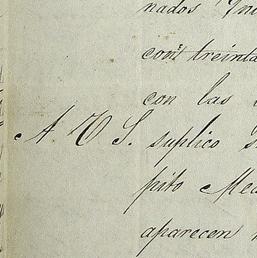 nados
con treinta
con las
A V S. suplico
pito Me
aparecen